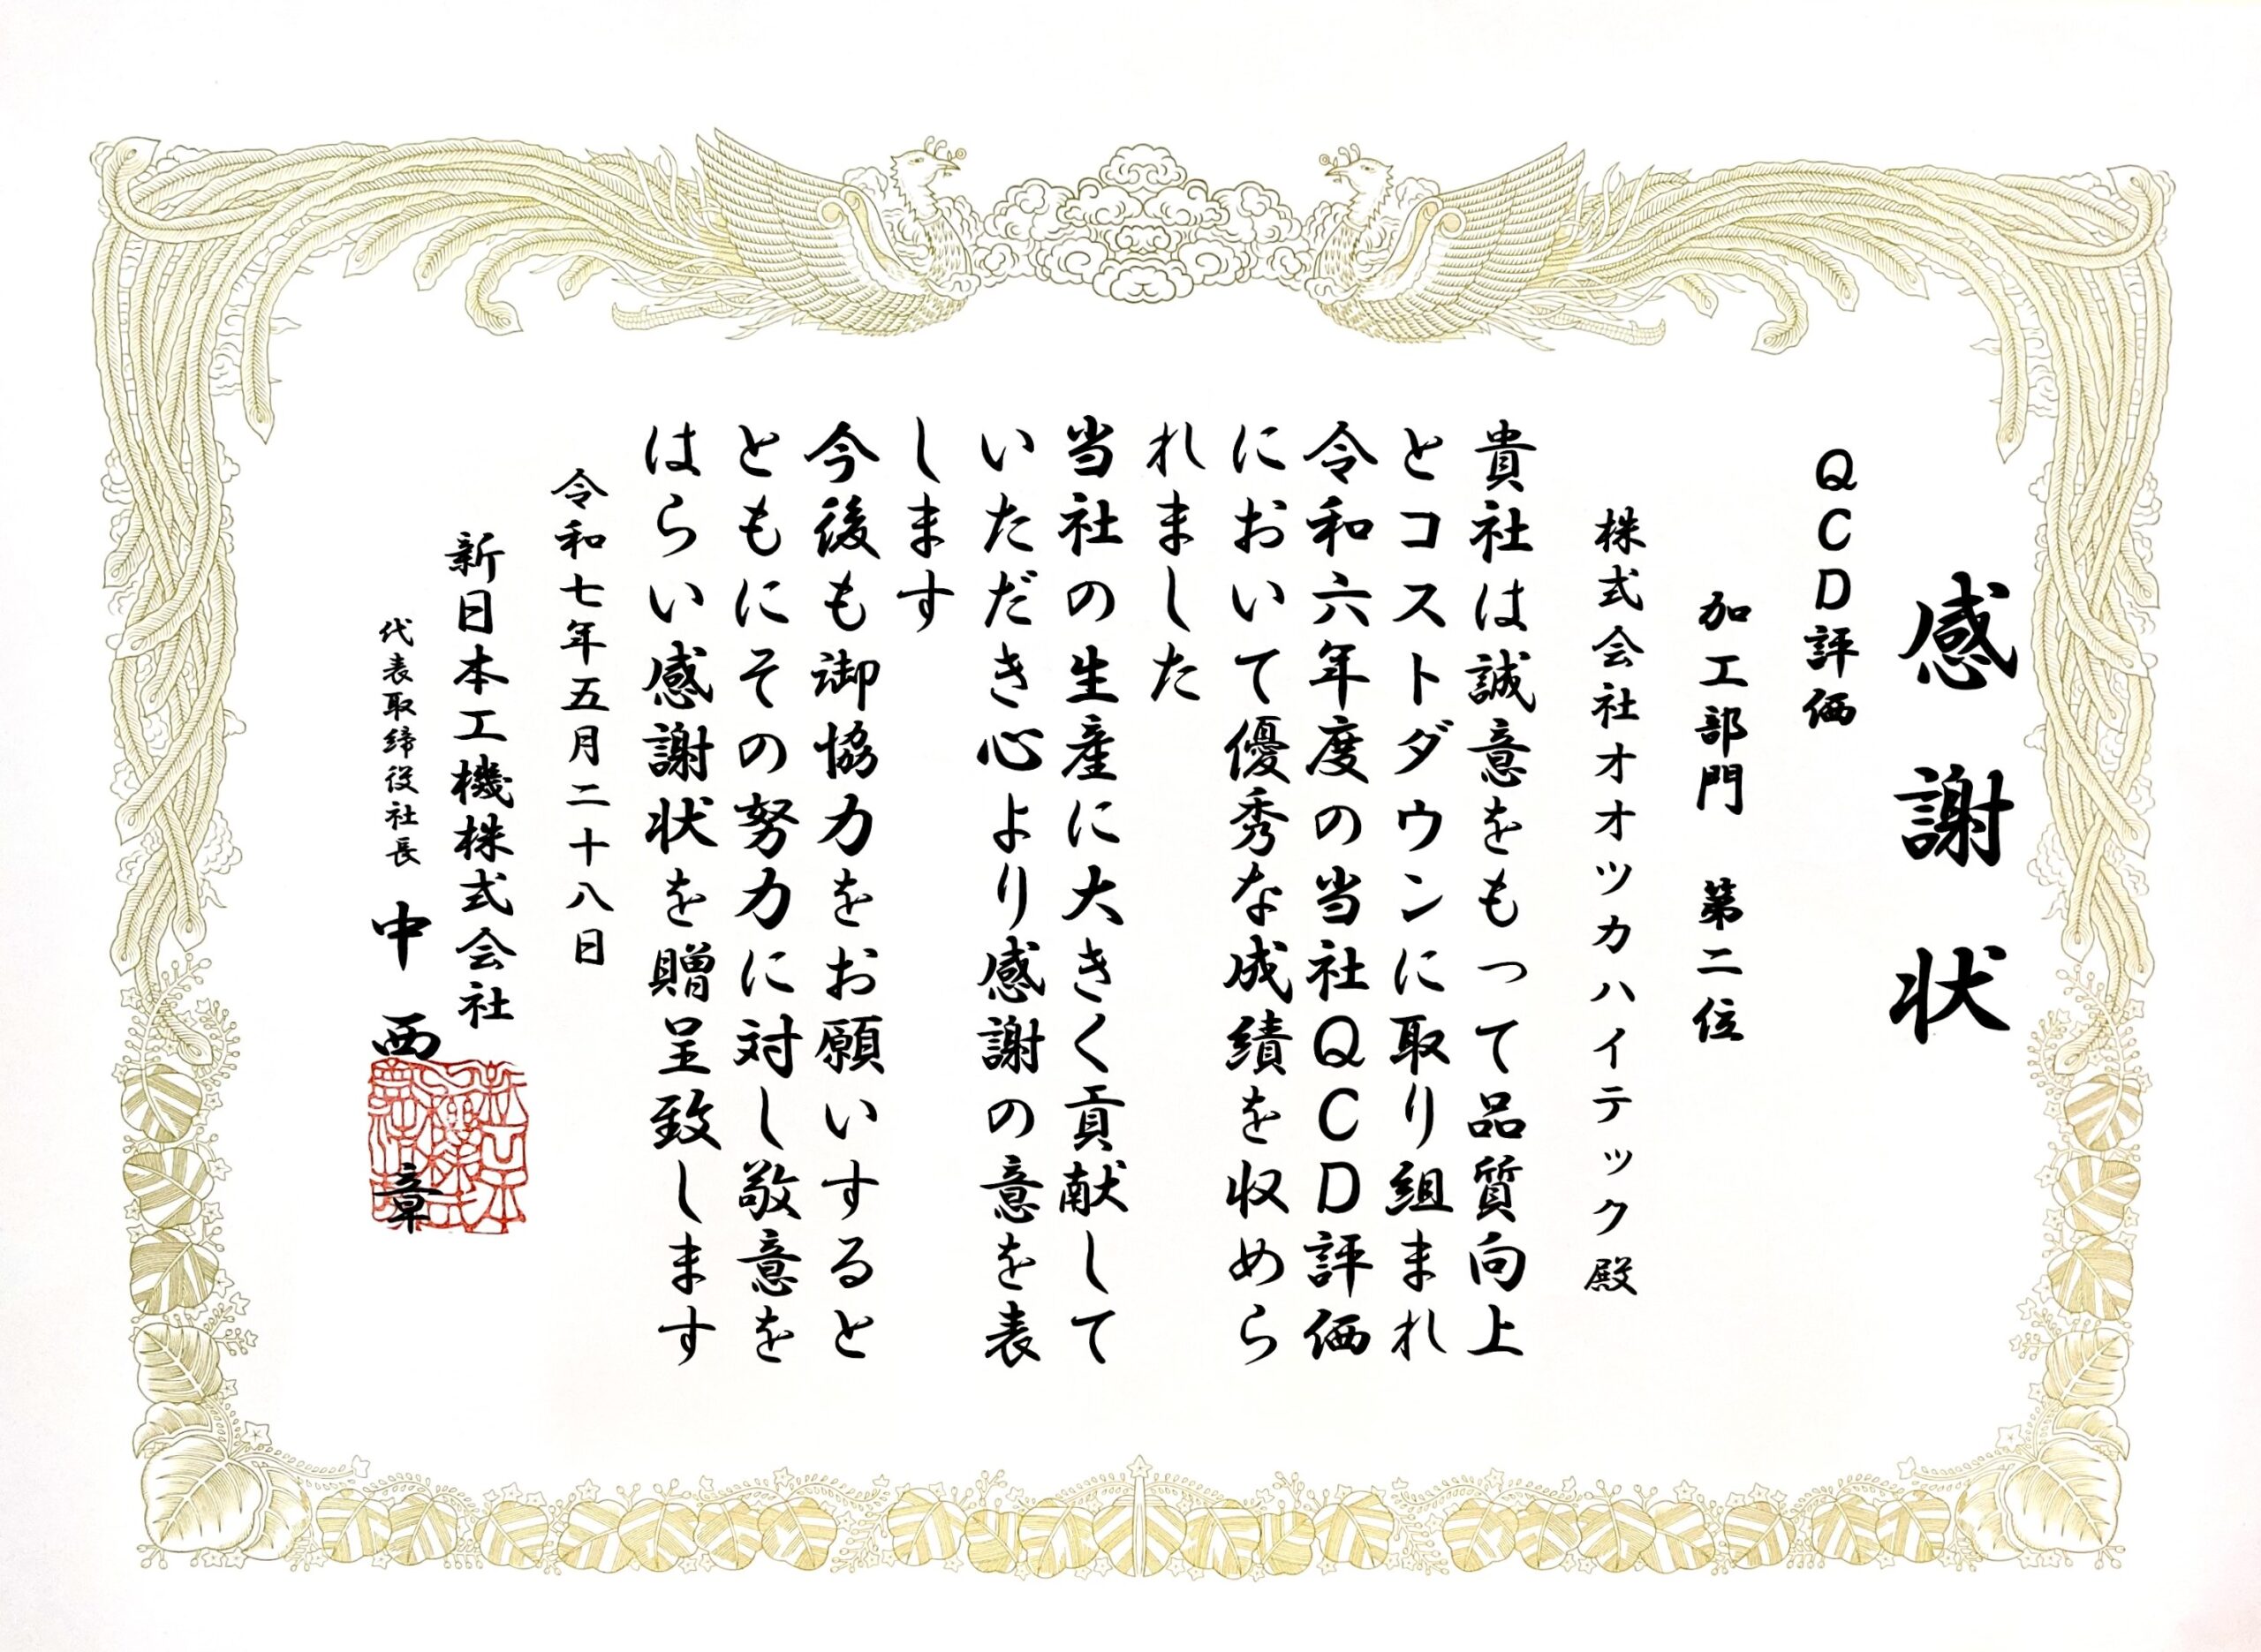 感謝状
QCD評価
加工部門　第二位
株式会社オオツカハイテック殿
貴社は誠意をもって品質向上
とコストダウンに取り組まれ
令和六年度の当社QCD評価
において優秀な成績を収めら
れました
当社の生産に大きく貢献して
いただき心より感謝の意を表
します
今後も御協力をお願いすると
ともにその努力に対し敬意を
はらい感謝状を贈呈致します
令和七年五月二十八日
新日本工機株式会社
代表取締役社長　中西　章